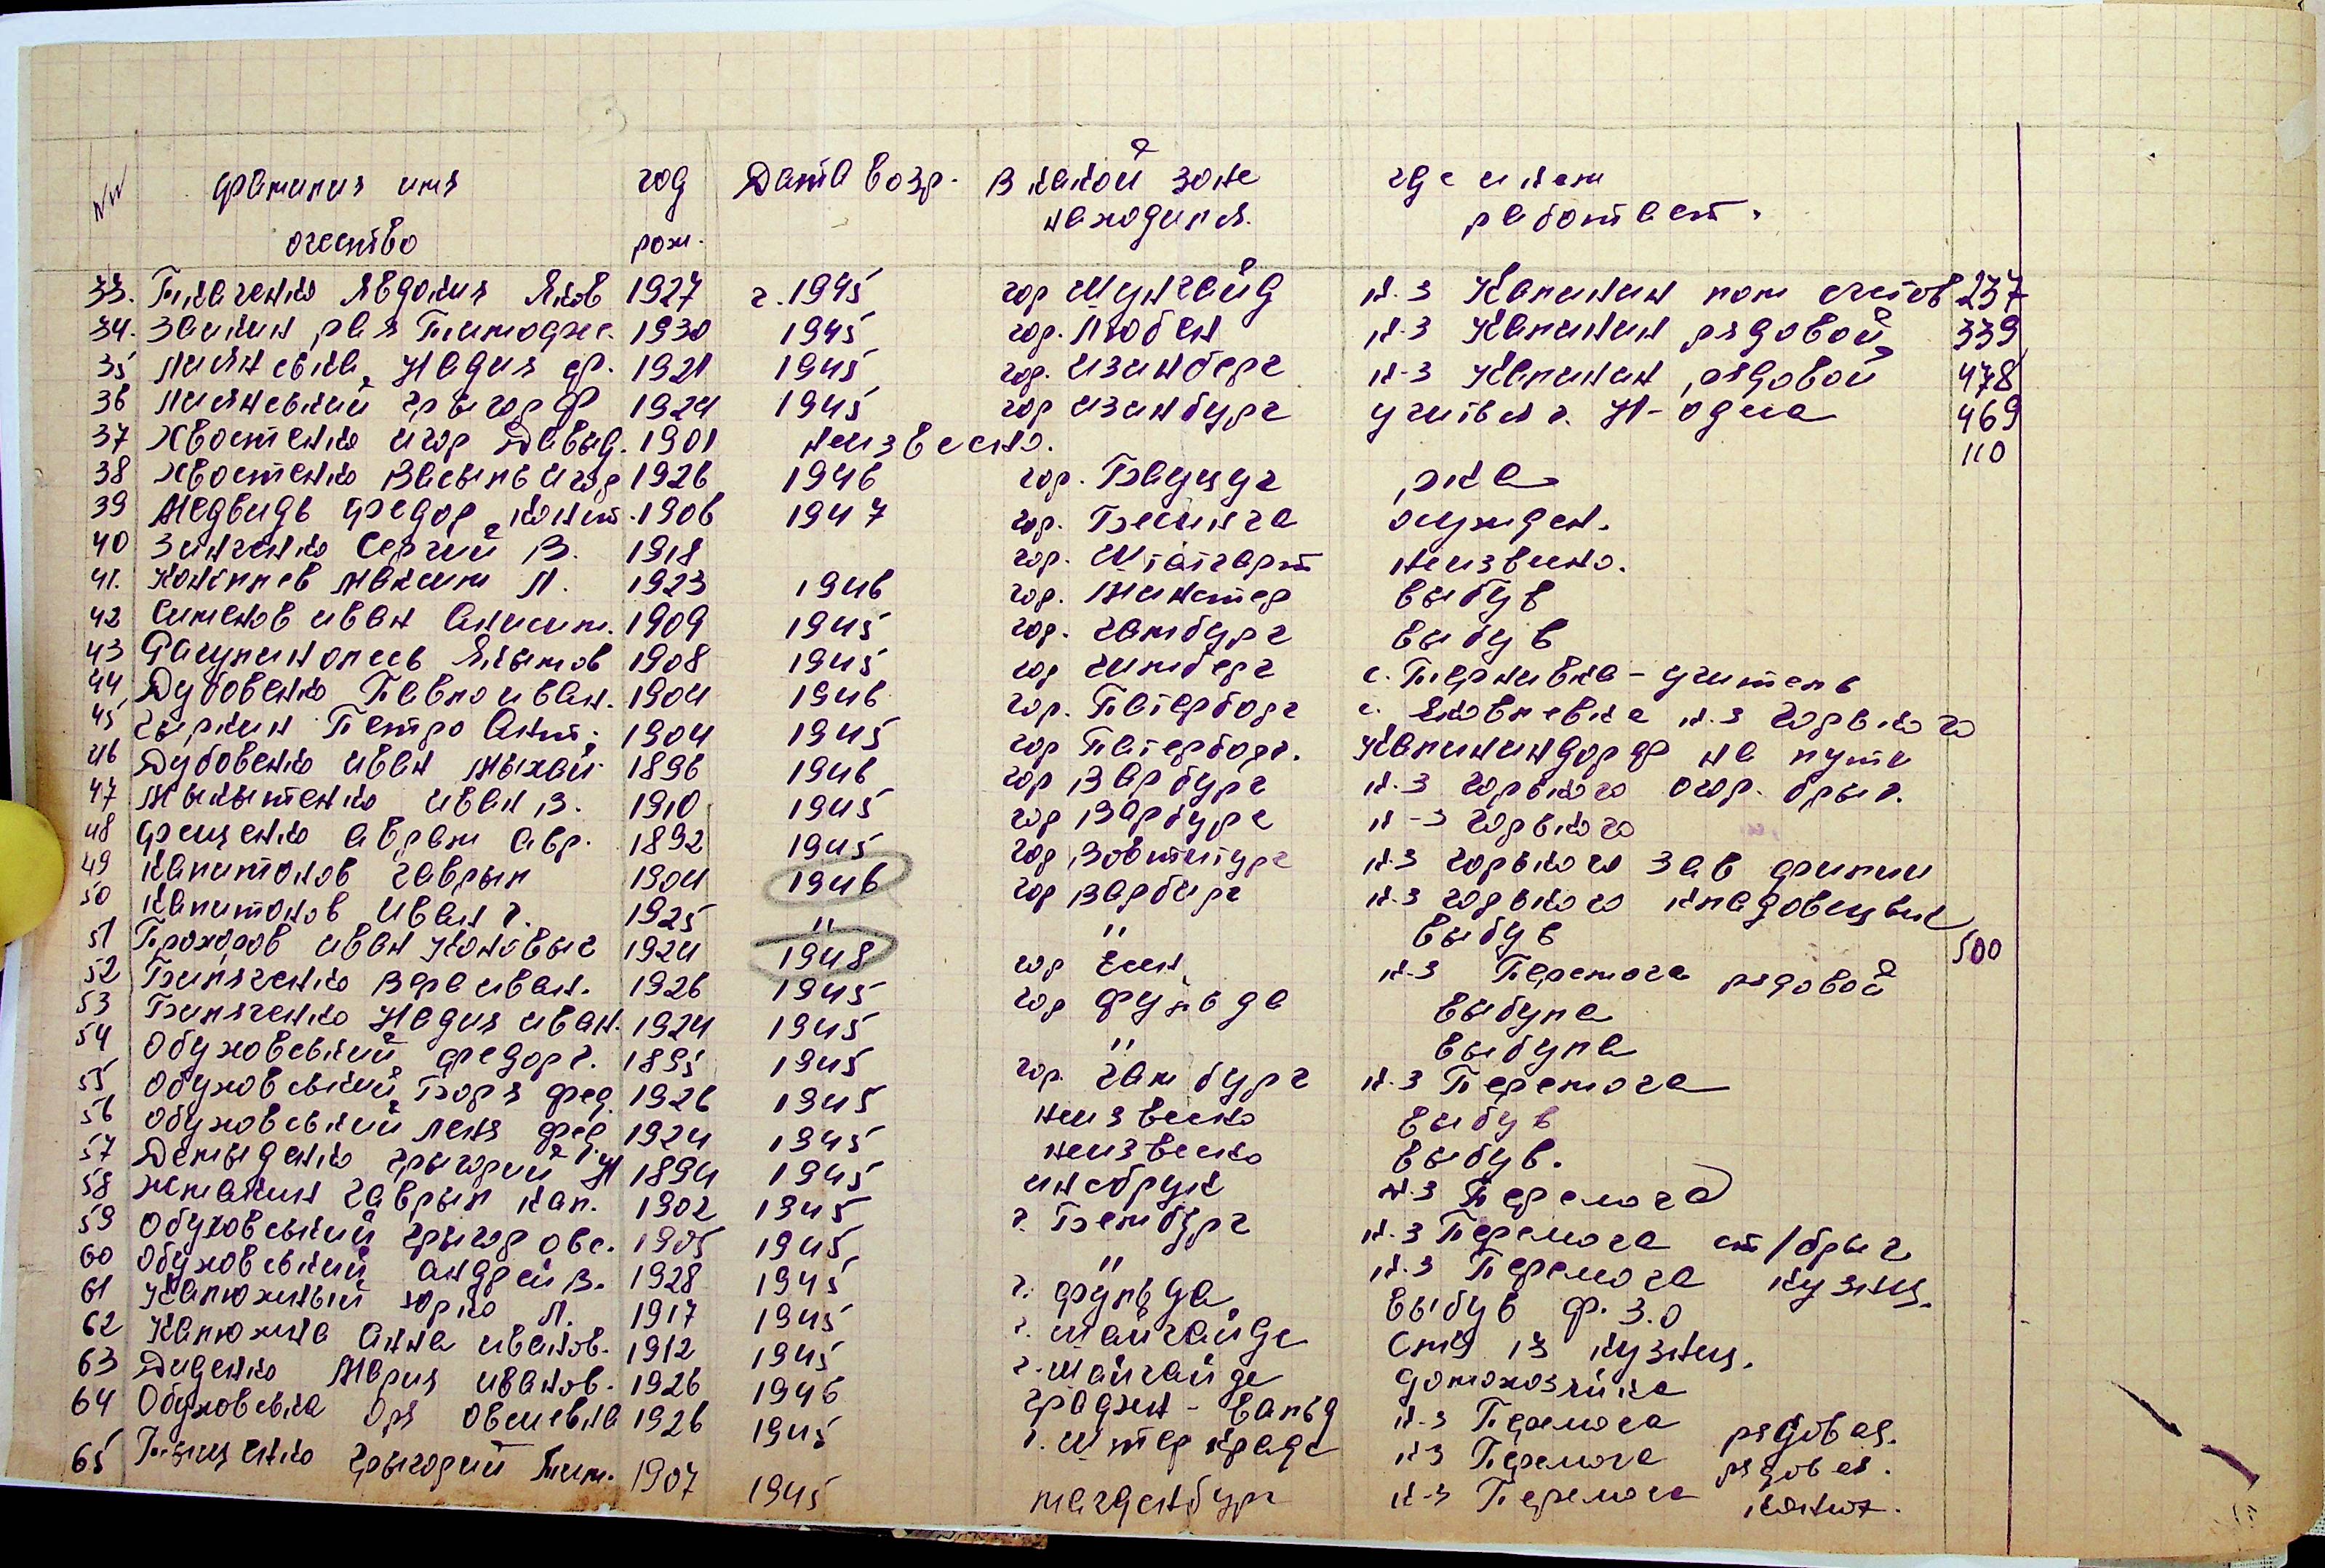 NN фамилия имя год Дата возр. В какой зоне где и кем
очество рож. находился. работает.
33. Ткаченко Явдокия Яков 1927 г. 1945 гор Мунгайд к.з Калинин пом счетов 237
34. Заикин рая Тимофее. 1930 1945 гор. Любек к.з Калинин рядовой 339
35 Надия ф. 1921 1945 гор. Изинберг к-з Калинин рядовой 478
36 григор Ф 1924 1945 гор изинбург учиться г. Н-одеса 469
37 Хвостенко игор Давыд. 1901 неизвесно. 110
38 Хвостенко Васыль игор 1926 1946 гор. Бауцуг рка
39 Медвидь Федор конст. 1906 1947 гор. Бесинга осужден.
40 Зинченко Сергий В. 1918 гор. Штатгарт неизвисно.
41. максим Л. 1923 1946 гор. минстер выбув
42 Симонов иван Анисим. 1909 1945 гор. гамбург выбув
43 Якымов 1908 1945 гор гимберг с. Тернивка - учитель
44 Дубовенко Павло иван. 1904 1946 гор. Патерборг с. Яковлевка к.з Горького
45 Чыркин Петро Ант. 1904 1945 гор Патерборг. Калининдорф на пути
46 Дубовенко иван мыхай 1896 1946 гор Варбург к.з Горького огор. брыг.
47 Мыкытенко иван В. 1910 1945 гор Варбург к-з Горького
48 Фещенко аврам авр. 1892 1945 гор к.з Горького зав
49 Капитонов гаврыл 1904 1946 гор Варбург к.з Горького кладовщык
50 Капитонов иван г. 1925 " " выбув 500
51 Прохоров иван 1924 1948 гор Есин к.з Перемога рядовой
52 Биляченко Вера иван. 1926 1945 гор фульда выбула
53 Биляченко Надия иван. 1924 1945 " выбула
54 Обуховський федор г. 1895 1945 гор. гамбург к.з Перемога
55 Обуховський Боря фед. 1926 1945 неизвесно выбув
56 Обуховський леня фед 1924 1945 неизвесно выбув.
57 Демыденко грыгорий Н 1894 1945 инсбрук к.з Перемога
58 жмакин гаврыл кап. 1902 1945 г. Бамбург к.з Перемога ст/брыг
59 Обуховський грыгор овс. 1905 1945 " к.з Перемога кузнец.
60 Обуховський андрей В. 1928 1945 г. фульда выбув ф.З.О
61 Калюжный юрко Л. 1917 1945 г. Майгайде кузнец.
62 Калюжна анна иванов. 1912 1945 г. Майгайде домохозяйка
63 Диденко Мария иванов. 1926 1946 к-з Перемога рядовая.
64 Обуховська Оля Овсиевна 1926 1945 к-з Перемога рядовая.
65 грыгорий Тим. 1907 1945 магденбург к-з Перемога конюх.